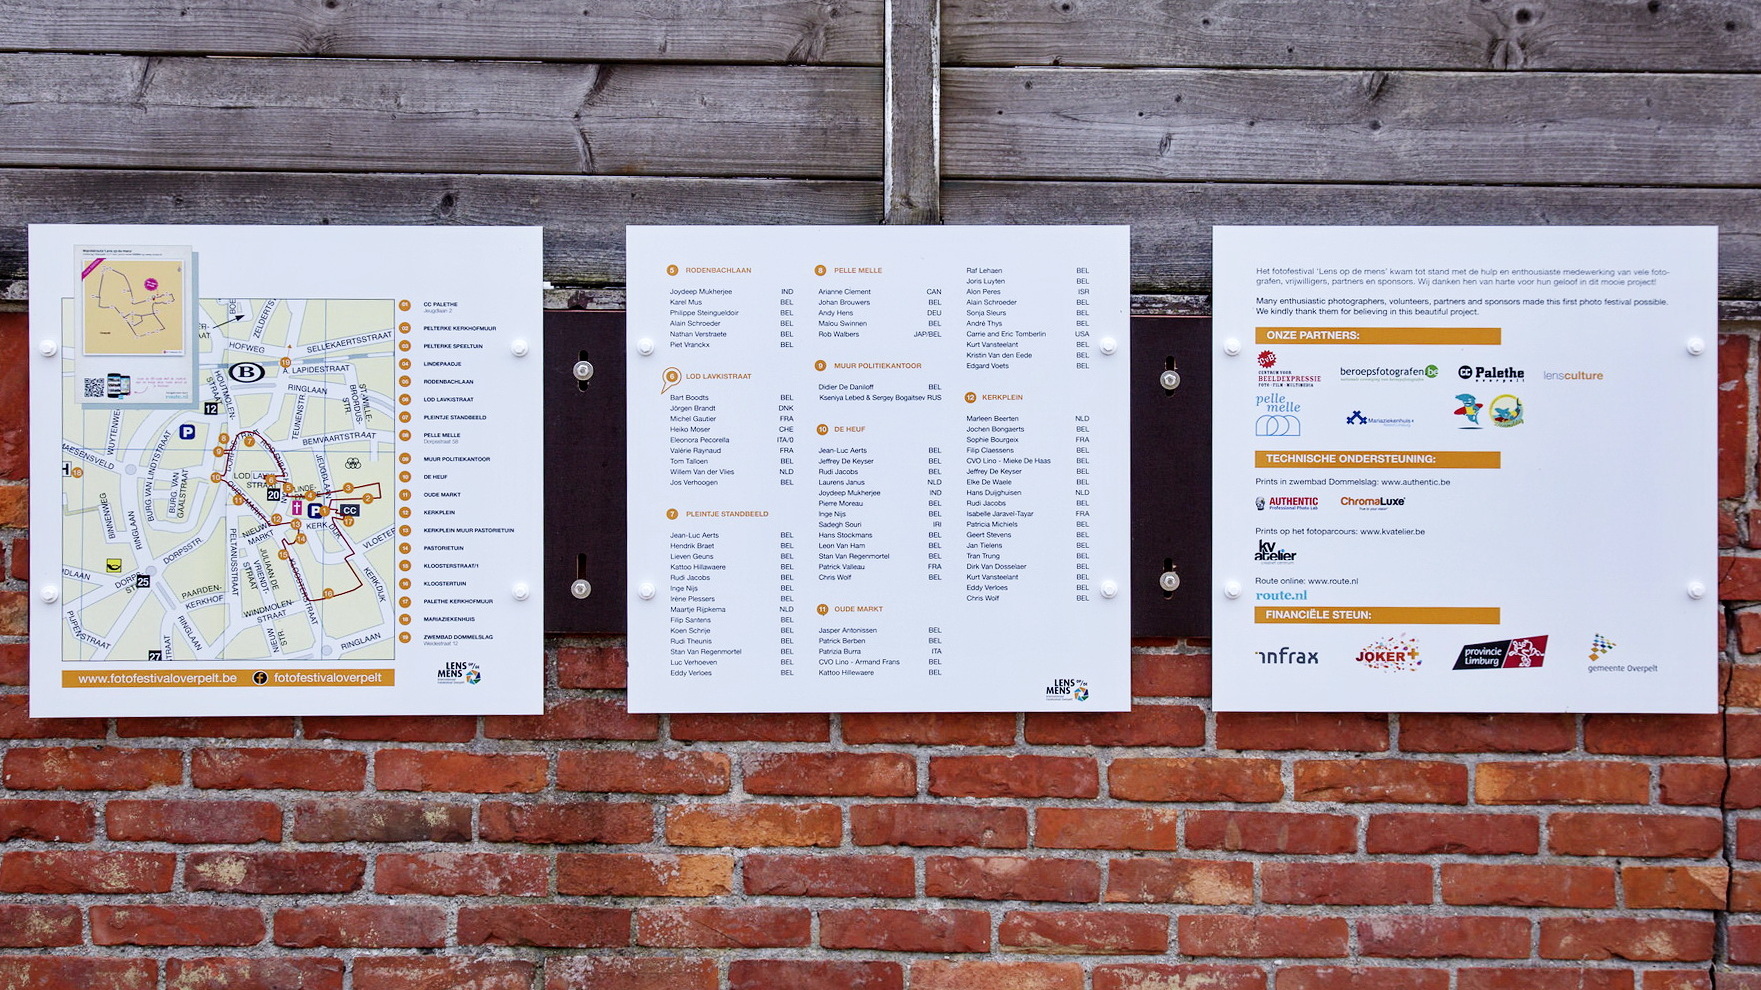 01 CC PALETHE
Jeugdlaan 2
02 PELTERKE KERKHOFMUUR
03 PELTERKE SPEELTUIN
04 LINDEPAADJE
05 RODENBACHLAAN
06 LOD LAVKISTRAAT
07 PLEINTJE STANDBEELD
08 PELLE MELLE
Dorpsstraat 58
09 MUUR POLITIEKANTOOR
10 DE HEUF
11 OUDE MARKT
12 KERKPLEIN
13 KERKPLEIN MUUR PASTORIETUIN
14 PASTORIETUIN
15 KLOOSTERSTRAAT/1
16 KLOOSTERTUIN
17 PALETHE KERKHOFMUUR
18 MARIAZIEKENHUIS
19 ZWEMBAD DOMMELSLAG
HOFWEG
SELLEKAERTSSTRAAT
A. LAPIDESTRAAT
RINGLAAN
BEMVAARTSTRAAT
B
12
P
20
CC
25
27
DORPSSTR.
PAARDEN-
KERKHOF
WINDMOLEN-
STRAAT
RINGLAAN
RINGLAAN
KERKDIJK
www.fotofestivaloverpelt.be f fotofestivaloverpelt
LENS
MENS
5 RODENBACHLAAN
Joydeep Mukherjee IND
Karel Mus BEL
Philippe Steingueldoir BEL
Alain Schroeder BEL
Nathan Verstraete BEL
Piet Vranckx BEL
6 LOD LAVKISTRAAT
Bart Boodts BEL
Jörgen Brandt DNK
Michel Gautier FRA
Heiko Moser CHE
Eleonora Pecorella ITA/0
Valérie Raynaud FRA
Tom Talloen BEL
Willem Van der Vlies NLD
Jos Verhoogen BEL
7 PLEINTJE STANDBEELD
Jean-Luc Aerts BEL
Hendrik Braet BEL
Lieven Geuns BEL
Kattoo Hillawaere BEL
Rudi Jacobs BEL
Inge Nijs BEL
Irène Plessers BEL
Maartje Rijpkema NLD
Filip Santens BEL
Koen Schrije BEL
Rudi Theunis BEL
Stan Van Regenmortel BEL
Luc Verhoeven BEL
Eddy Verloes BEL
8 PELLE MELLE
Arianne Clement CAN
Johan Brouwers BEL
Andy Hens DEU
Malou Swinnen BEL
Rob Walbers JAP/BEL
9 MUUR POLITIEKANTOOR
Didier De Daniloff BEL
Kseniya Lebed & Sergey Bogatsev RUS
10 DE HEUF
Jean-Luc Aerts BEL
Jeffrey De Keyser BEL
Rudi Jacobs BEL
Laurens Janus NLD
Joydeep Mukherjee IND
Pierre Moreau BEL
Inge Nijs BEL
Sadegh Souri IRI
Hans Stockmans BEL
Leon Van Ham BEL
Stan Van Regenmortel BEL
Patrick Valleau FRA
Chris Wolf BEL
11 OUDE MARKT
Jasper Antonissen BEL
Patrick Berben BEL
Patrizia Burra ITA
CVO Lino - Armand Frans BEL
Kattoo Hillewaere BEL
Raf Lehaen BEL
Joris Luyten BEL
Alon Peres ISR
Alain Schroeder BEL
Sonja Sleurs BEL
André Thys BEL
Carrie and Eric Tomberlin USA
Kurt Vansteelant BEL
Kristin Van den Eede BEL
Edgard Voets BEL
12 KERKPLEIN
Marleen Beerten NLD
Jochen Bongaerts BEL
Sophie Bourgeix FRA
Filip Claessens BEL
CVO Lino - Mieke De Haas BEL
Jeffrey De Keyser BEL
Elke De Waele BEL
Hans Duijghuisen NLD
Rudi Jacobs BEL
Isabelle Jaravel-Tayar FRA
Patricia Michiels BEL
Geert Stevens BEL
Jan Tielens BEL
Tran Trung BEL
Dirk Van Dosselaer BEL
Kurt Vansteelant BEL
Eddy Verloes BEL
Chris Wolf BEL
LENS
MENS
Het fotofestival 'Lens op de mens' kwam tot stand met de hulp en enthousiaste medewerking van vele foto-
grafen, vrijwilligers, partners en sponsors. Wij danken hen van harte voor hun geloof in dit mooie project!
Many enthusiastic photographers, volunteers, partners and sponsors made this first photo festival possible.
We kindly thank them for believing in this beautiful project.
ONZE PARTNERS:
CVB
CENTRUM VOOR
BEELDEXPRESSIE
FOTO · FILM · MULTIMEDIA
beroepsfotografen be
CC Palethe
overpelt
lensculture
pelle
melle
Mariaziekenhuis
TECHNISCHE ONDERSTEUNING:
Prints in zwembad Dommelslag: www.authentic.be
AUTHENTIC
Professional Photo Lab
ChromaLuxe
Prints op het fotoparcours: www.kvatelier.be
kv
atelier
Route online: www.route.nl
route.nl
FINANCIËLE STEUN:
infrax
JOKER+
provincie
Limburg
gemeente Overpelt